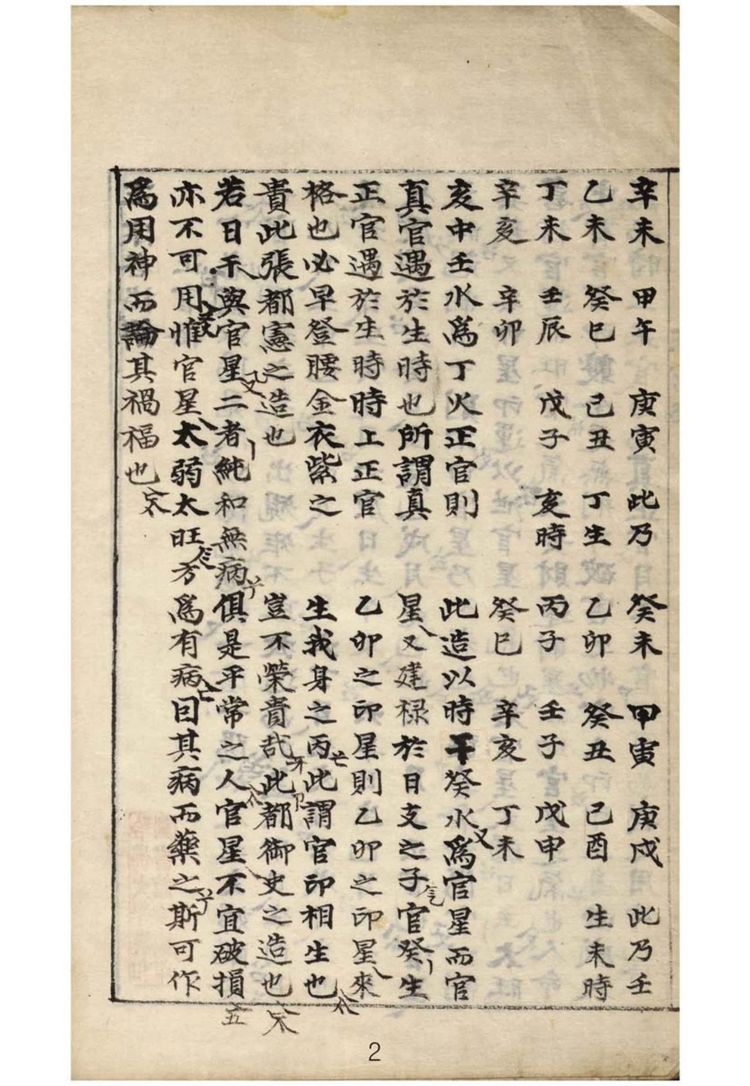 辛未 甲午 庚寅 此乃
乙未 癸巳 己丑 丁生
丁未 壬辰 戊子 亥時
辛亥 辛卯
亥中壬水爲丁火正官則
真官遇於生時也所謂真
正官遇於生時時上正官
格也必早登腰金衣紫之
貴此張都憲之造也
癸未 甲寅 庚戌 此乃壬
乙卯 癸丑 己酉 生未時
丙子 壬子 戊申
癸巳 辛亥 丁未
此造以時干癸水爲官星而官
星又建禄於日支之子官癸生
乙卯之印星則乙卯之印星來
生我身之丙此謂官印相生也
豈不榮貴哉此都御史之造也
若日干與官星二者純和無病俱是平常之人官星不宜破損
亦不可用惟官星太弱太旺方爲有病因其病而藥之斯可作
爲用神而論其禍福也
2